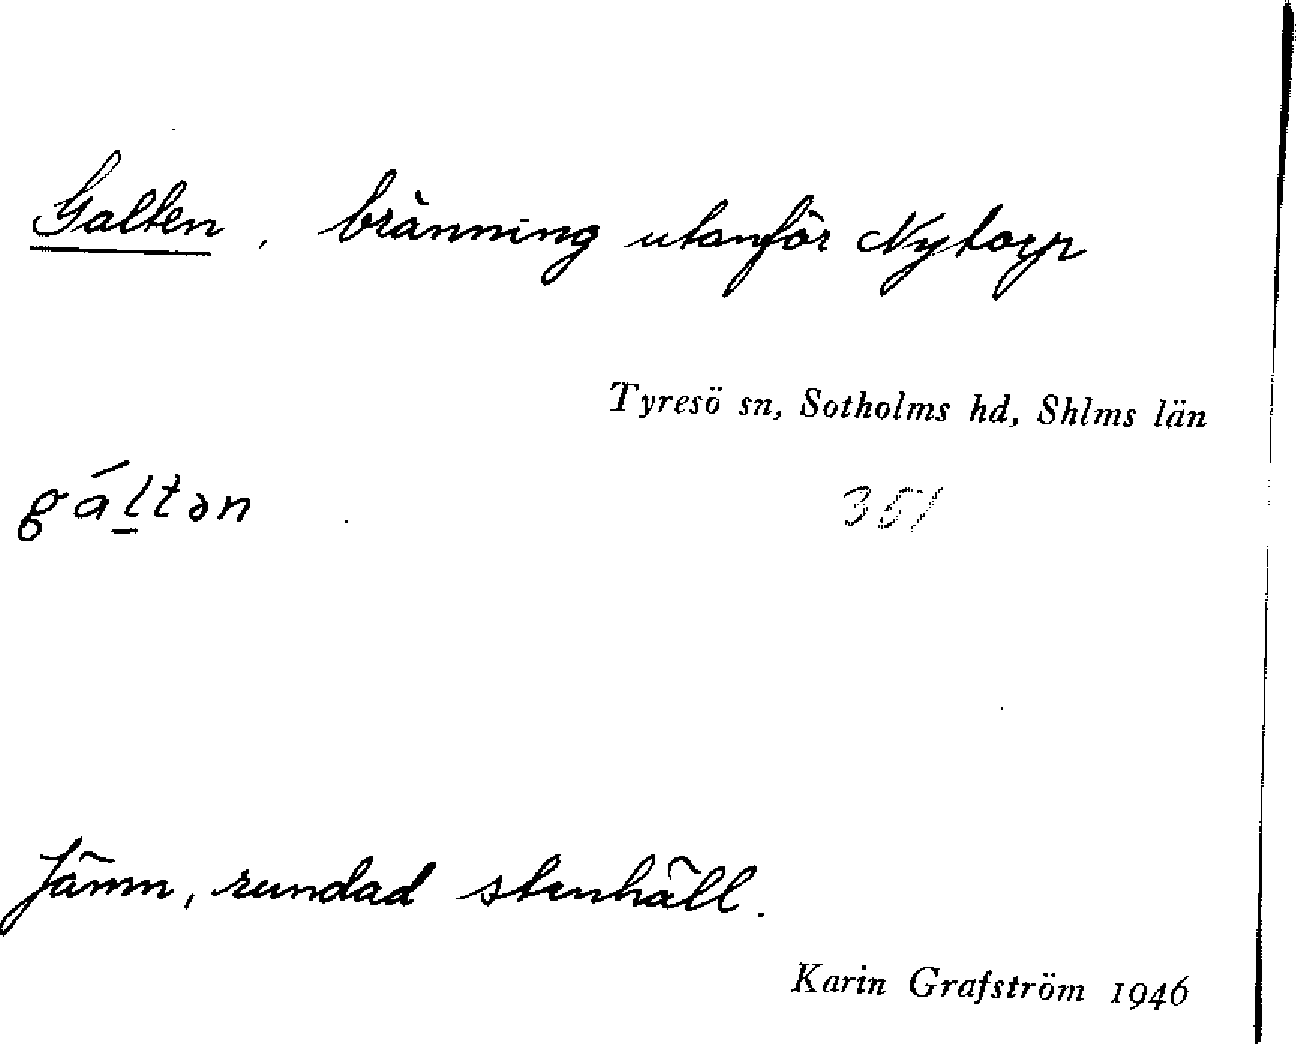 Galten, bränning utanför Nytorp
Tyresö sn, Sotholms hd, Shlms län
gáḻtən
351
Jämn, rundad stenhäll.
Karin Grafström 1946